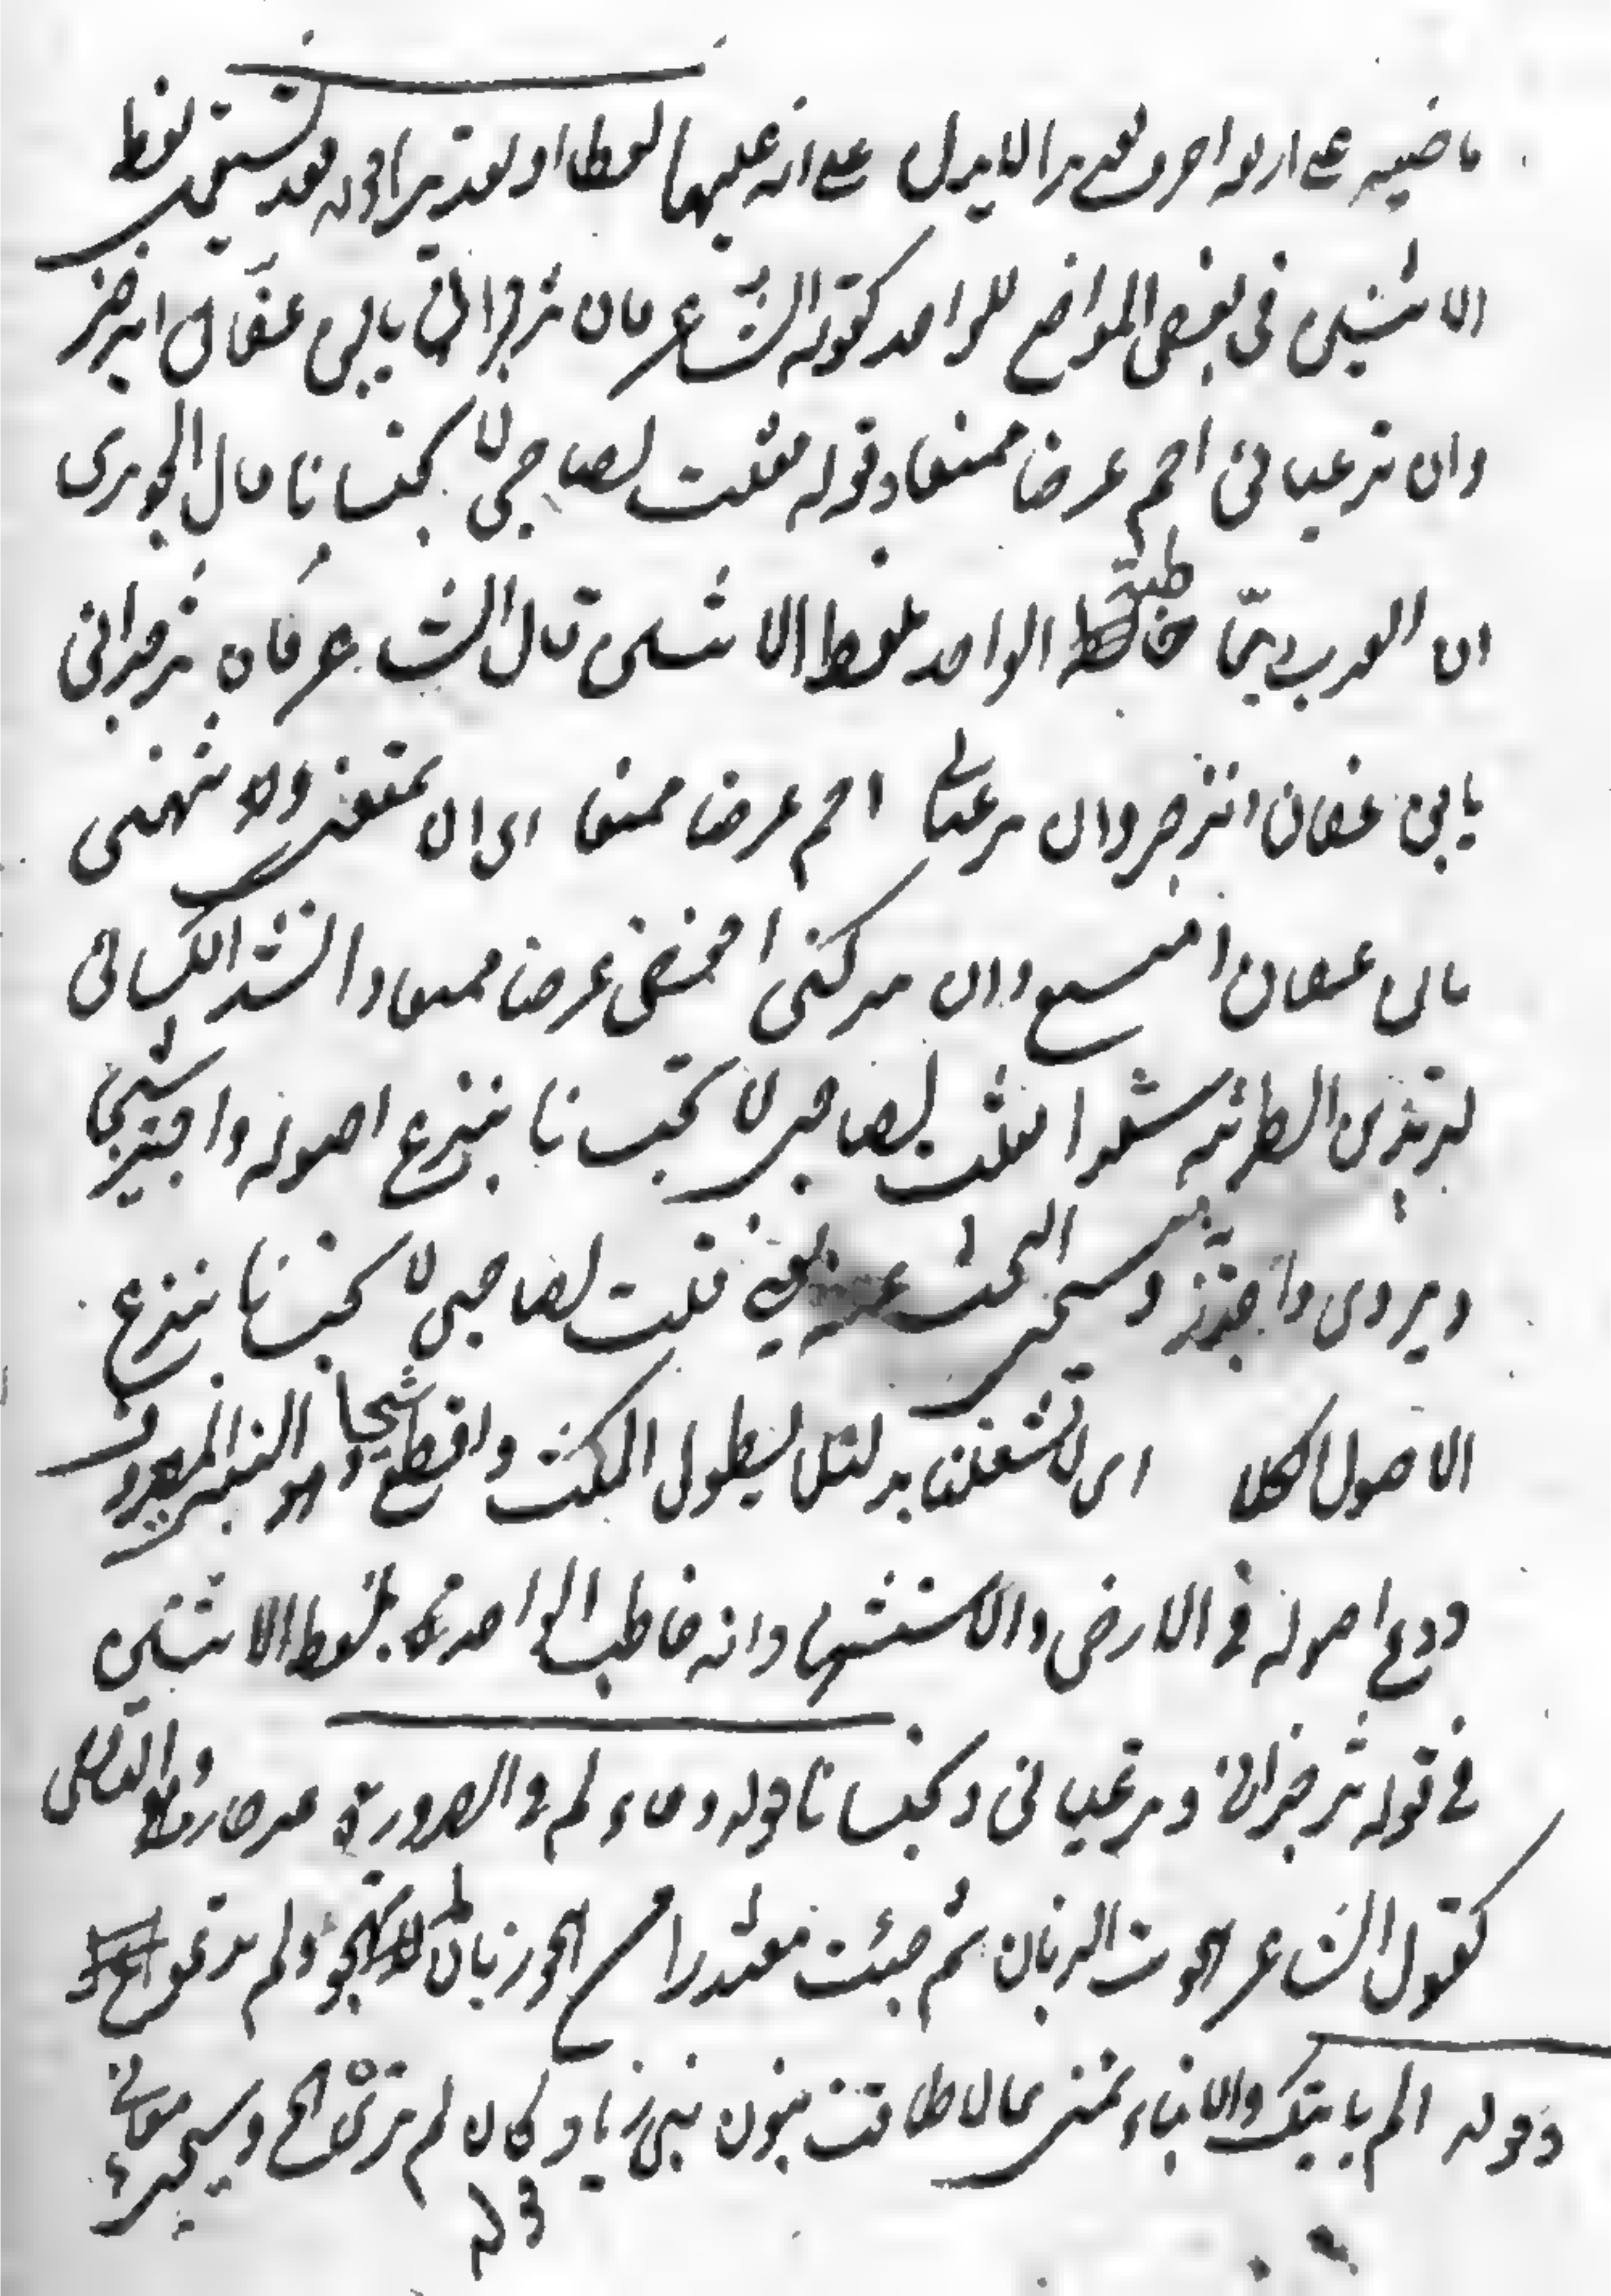 ماضيه على اربعة احرف نعم هذا لا يدل على انه عليهما لفظا او تقديرا قوله فقد تستعمل لفظ
الاثنين في بعض المواضع للواحد كقوله الشاعر فان تزجراني يا ابن عفان انزجر
وان ترعياني احم عرضا ممنعا وقوله فقلت لصاحبي لا تحبسانا قال الجوهري
ان العرب ربما خاطبت الواحد بلفظ الاثنين قال الشاعر فان تزجراني
يا ابن عفان انزجر وان ترعياني احم عرضا ممنعا اى ان تمنعني ولا تنهني
يا ابن عفان امنع وان تتركني احفظ عرضا ممنعا وانشد الكسائي
ليزيد بن الطثرية شعرا فقلت لصاحبي لا تحبسانا بنزع اصوله واجتز شيحا
ويروى واجدز وسيجئ البحث عنه يعني قلت لصاحبي لا تحبسانا بنزع
الاصول كلا اى لا تشغلنا به لئلا يطول المكث واقطع شيحا وهو النبت المعروف
ودع اصوله في الارض والاستشهاد انه خاطب الواحد بلفظ الاثنين
في قوله تزجراني وترعياني وتحبسانا قوله وجاء لم في الضرورة غير جازم والفاصل
كقول الشاعر هجوت زبان ثم جئت معتذرا من هجو زبان لم تهجو ولم تدع
وقوله الم يأتيك والانباء تنمي بما لاقت لبون بني زياد كان لم ترى الخ وسيجئ معاني